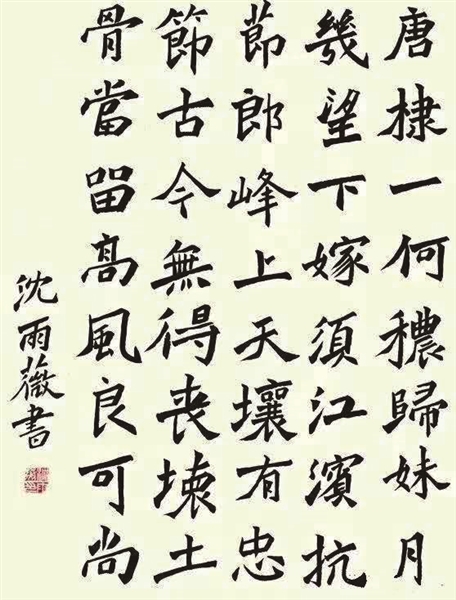 唐棣一何穠歸妹月
幾望下嫁須江濱抗
莭郎峰上天壤有忠
節古今無得喪壞土
骨當留髙風良可尚
沈雨薇書